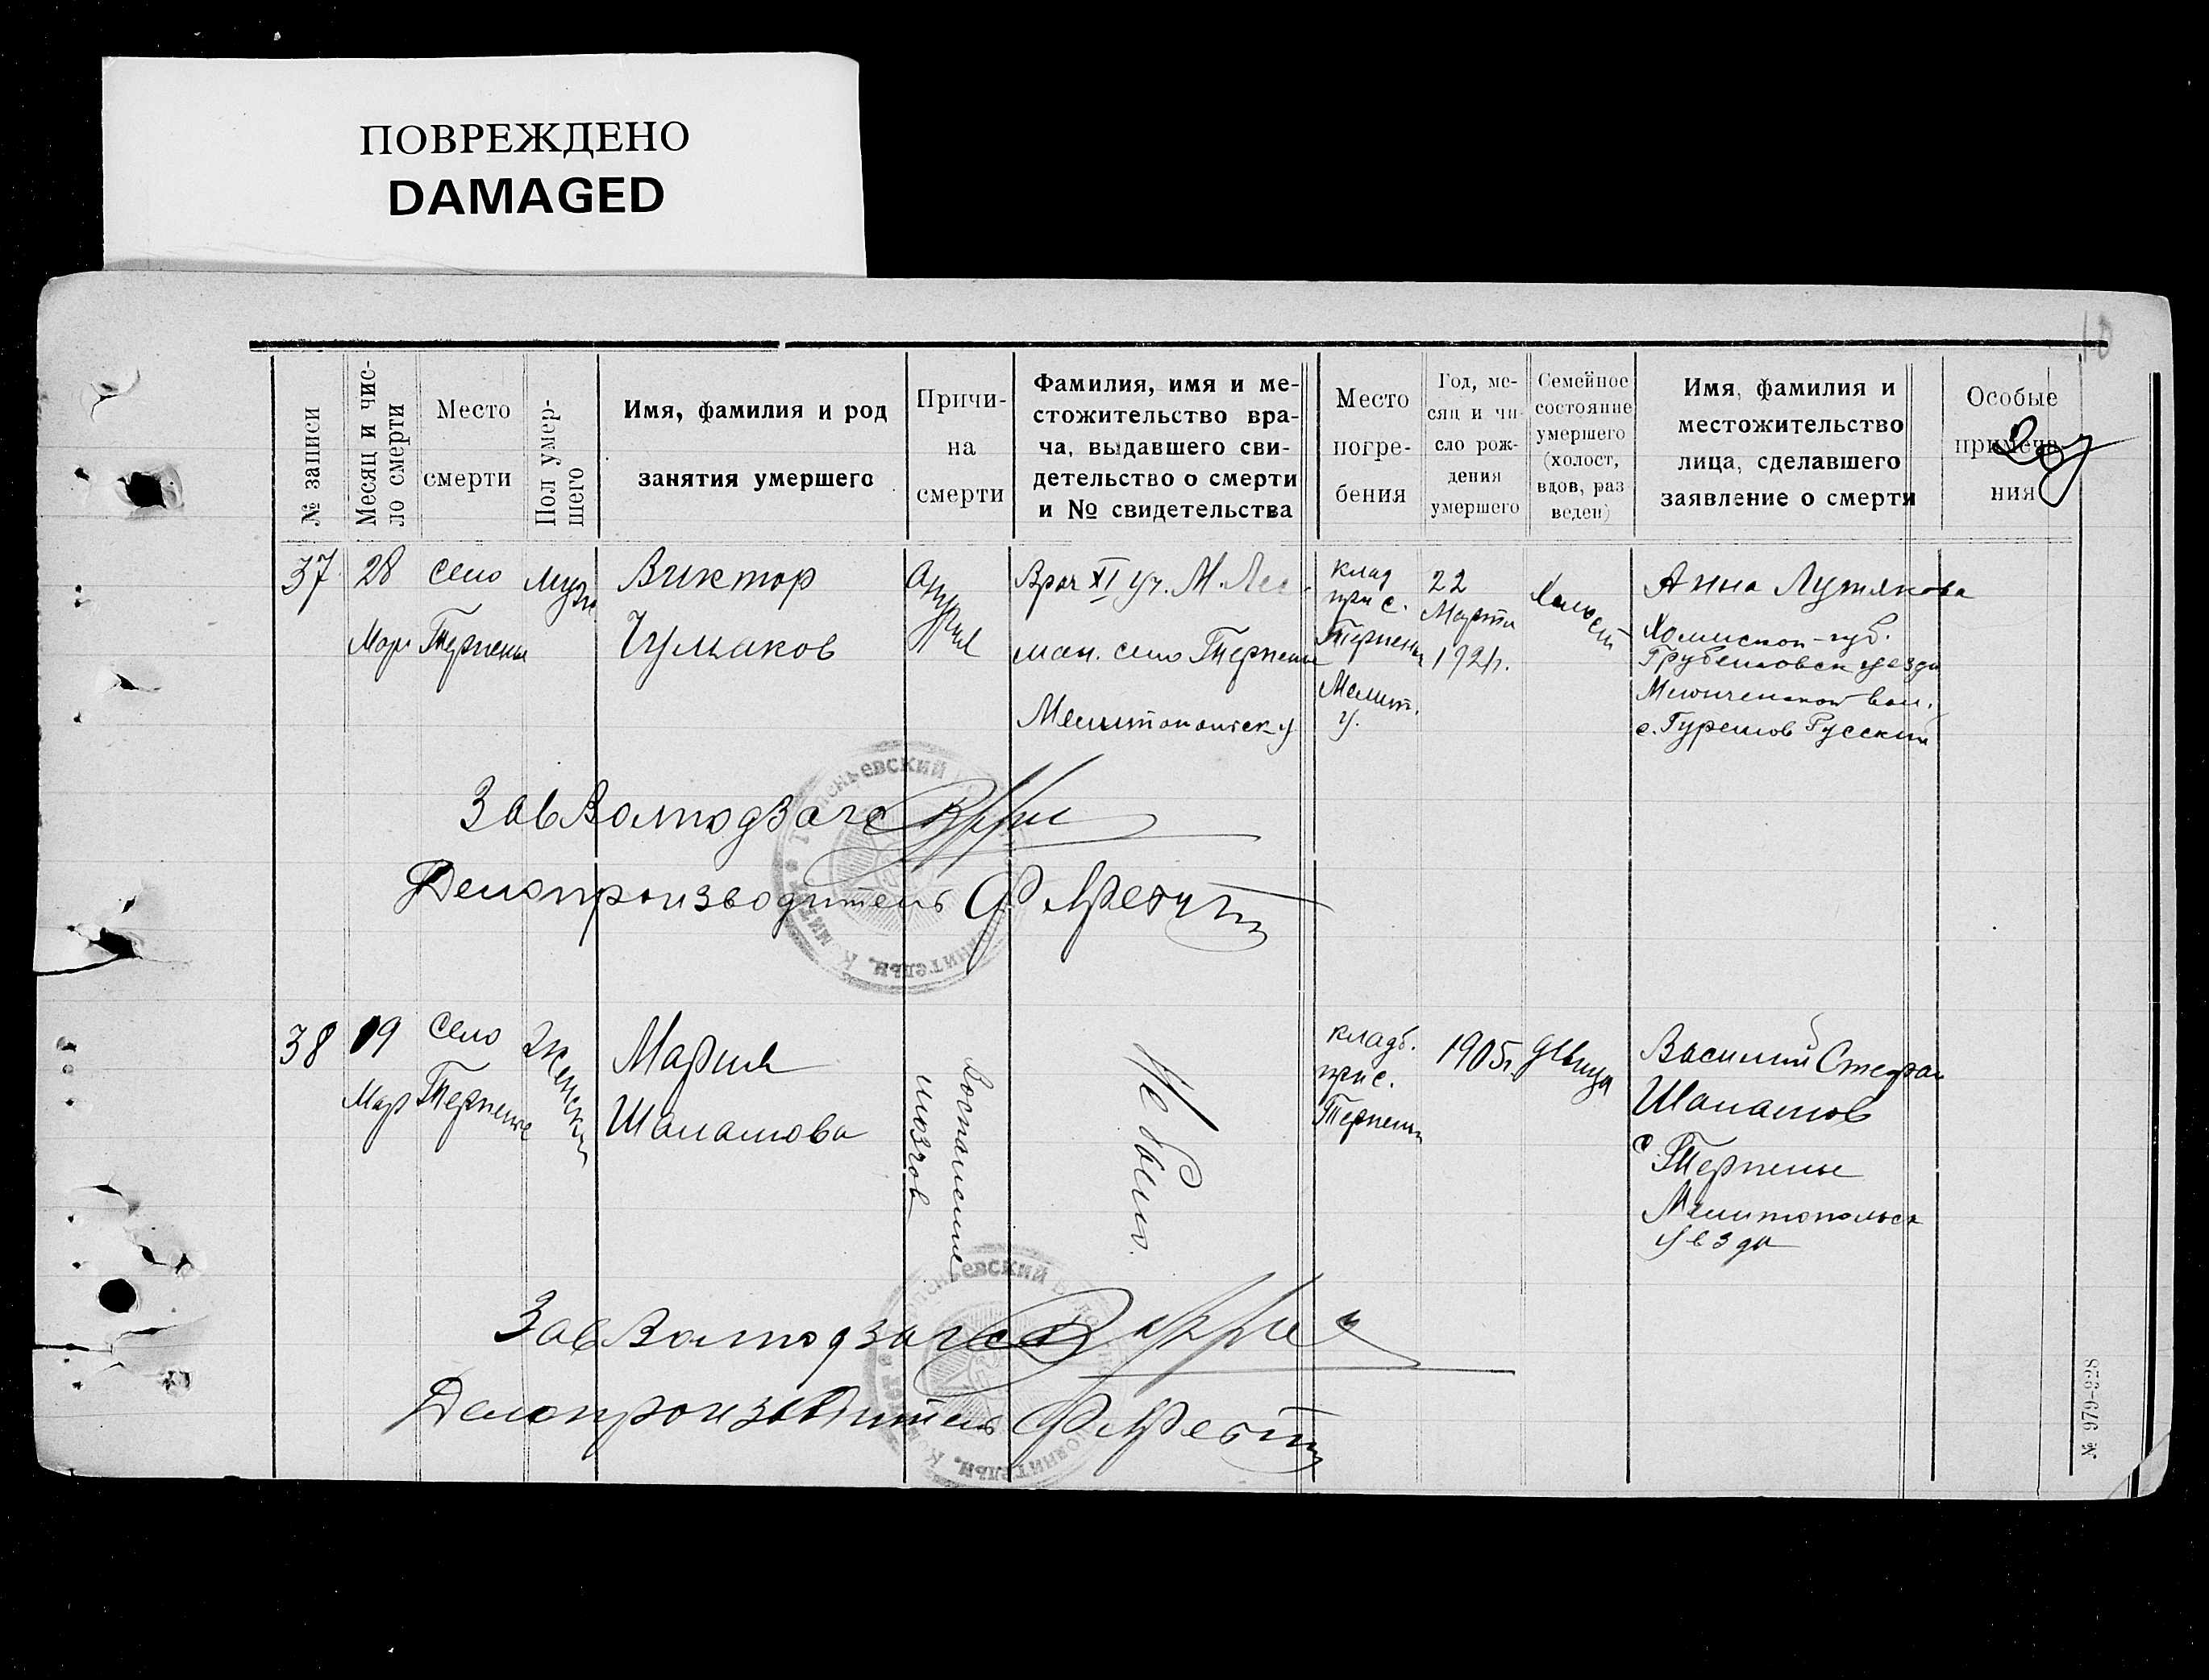 ПОВРЕЖДЕНО
DAMAGED
10
№ записи
Месяц и чис-
ло смерти
Место
смерти
Пол умер-
шего
Имя, фамилия и род
занятия умершего
Причи-
на
смерти
Фамилия, имя и ме-
стожительство вра-
ча, выдавшего сви-
детельство о смерти
и № свидетельства
Место
погре-
бения
Год, ме-
сяц и чи-
сло рож-
дения
умершего
Семейное
состояние
умершего
(холост,
вдов, раз
веден)
Имя, фамилия и
местожительство
лица, сделавшего
заявление о смерти
Особые
примеча-
ния
37
28
Мар
село
Терпенье
Муж
Виктор
Чумаков
Врач XI уч. М.
село Терпенье
Мелитопольск у
клад
при с.
Терпенье
Мелит.
у.
22
Марта
1921г.
Холост
Анна Лутякова
Холмской губ.
Грубешовск уезда
вол.
с. Русский
ЗавВолподЗагс
Делопроизводитель
38
19
Мар
село
Терпенье
Женский
Мария
Шалашова
Воспаление
мозгов
Не было.
кладб.
при с.
Терпенье
1905г.
девица
Василий Стефан
Шалашов
с Терпенье
Мелитопольск
уезда
ЗавВолподзагс
Делопроизводитель
№ 979-928